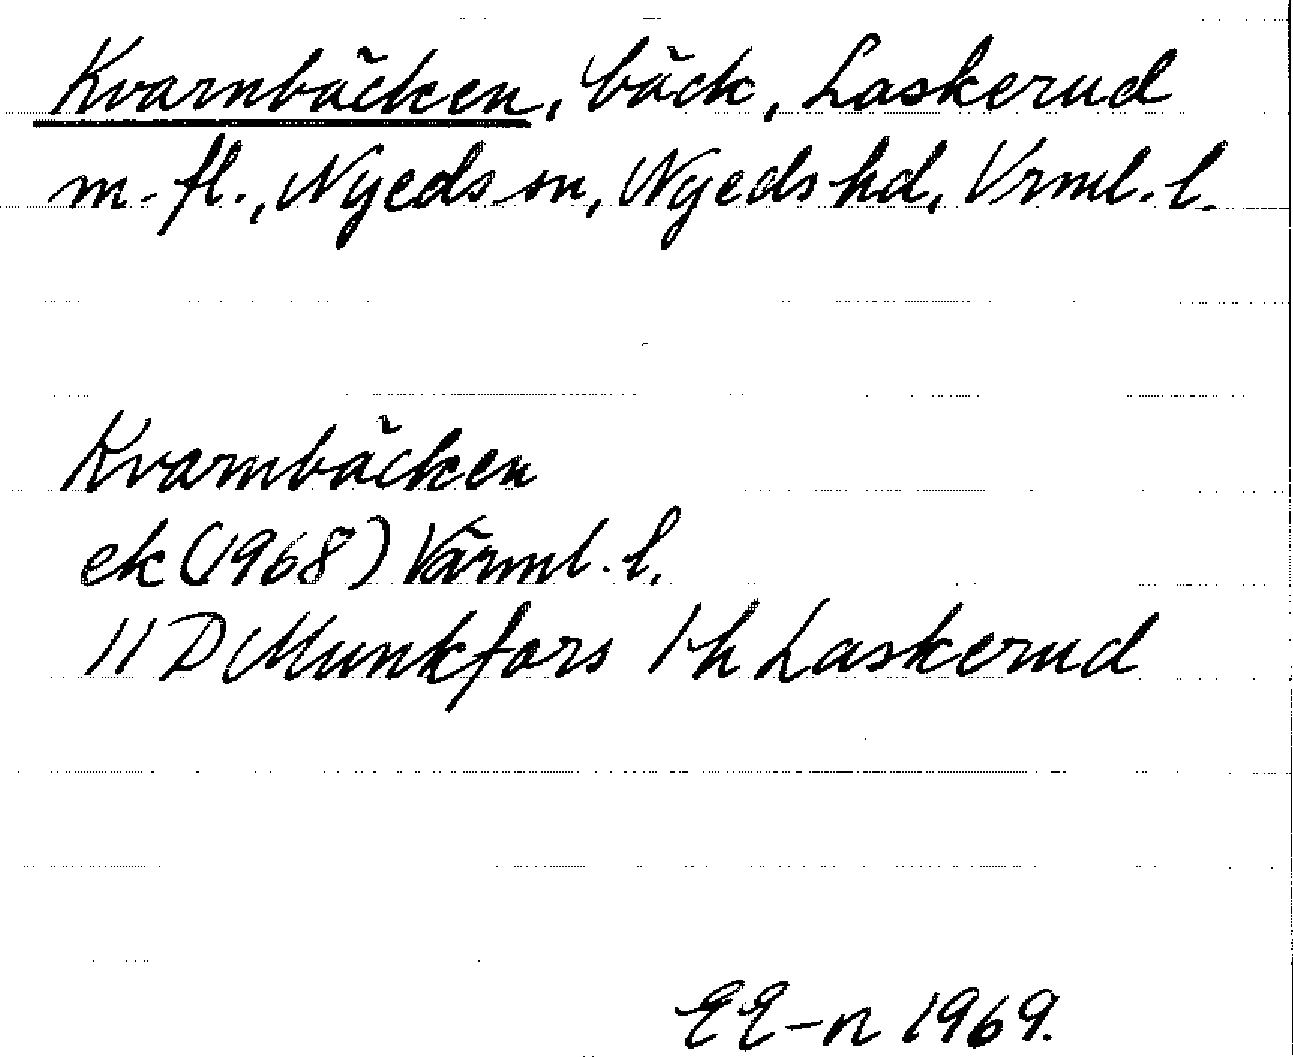 Kvarnbäcken, bäck, Laskerud
m. fl., Nyeds sn, Nyeds hd, Vrml. l.
Kvarnbäcken
ek (1968) Värml. l.
11 D Munkfors 1 h Laskerud
EE-n 1969.